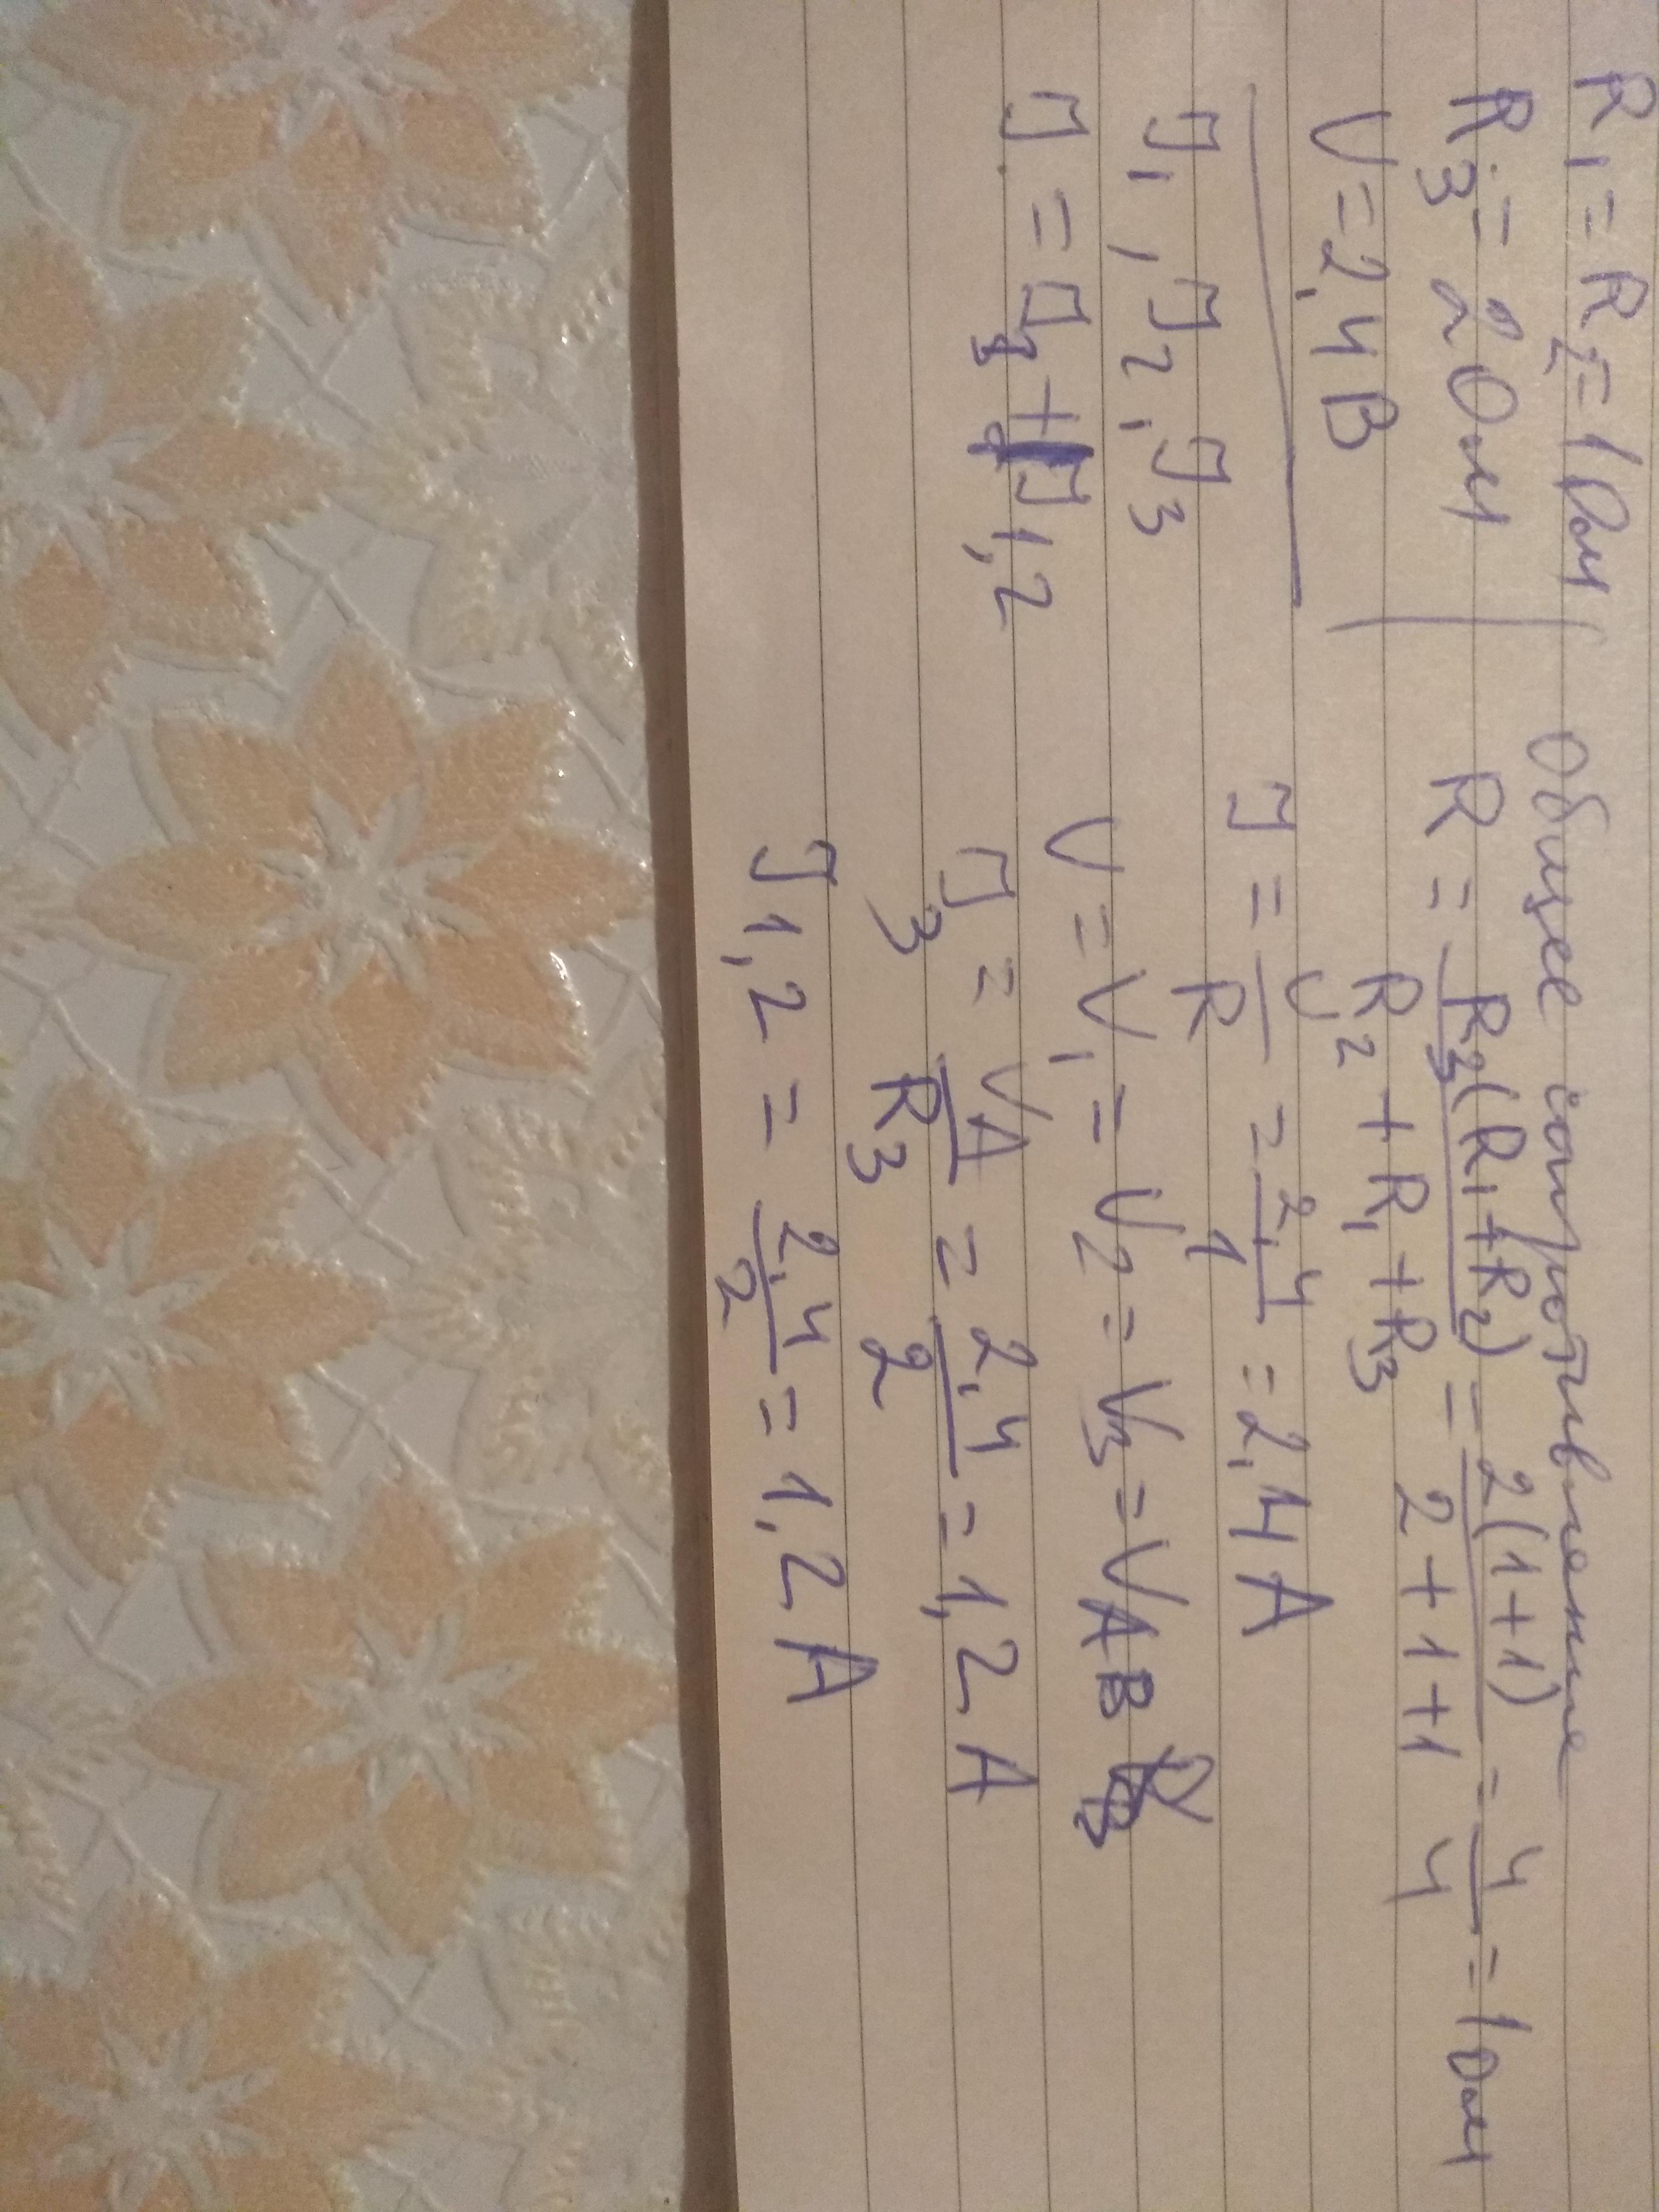 R₁ = R₂ = 1 Ом
R₃ = 2 Ом
U = 2,4 В
J₁, J₂, J₃
J = J₃ + J1,2
Общее сопротивление
R = R₃(R₁+R₂) / R₂ + R₁ + R₃ = 2(1+1) / 2+1+1 = 4 / 4 = 1 Ом
J = U / R = 2,4 / 1 = 2,4 А
U = U₁ = U₂ = U₃ = U AB
J₃ = UA / R₃ = 2,4 / 2 = 1,2 А
J1,2 = 2,4 / 2 = 1,2 А